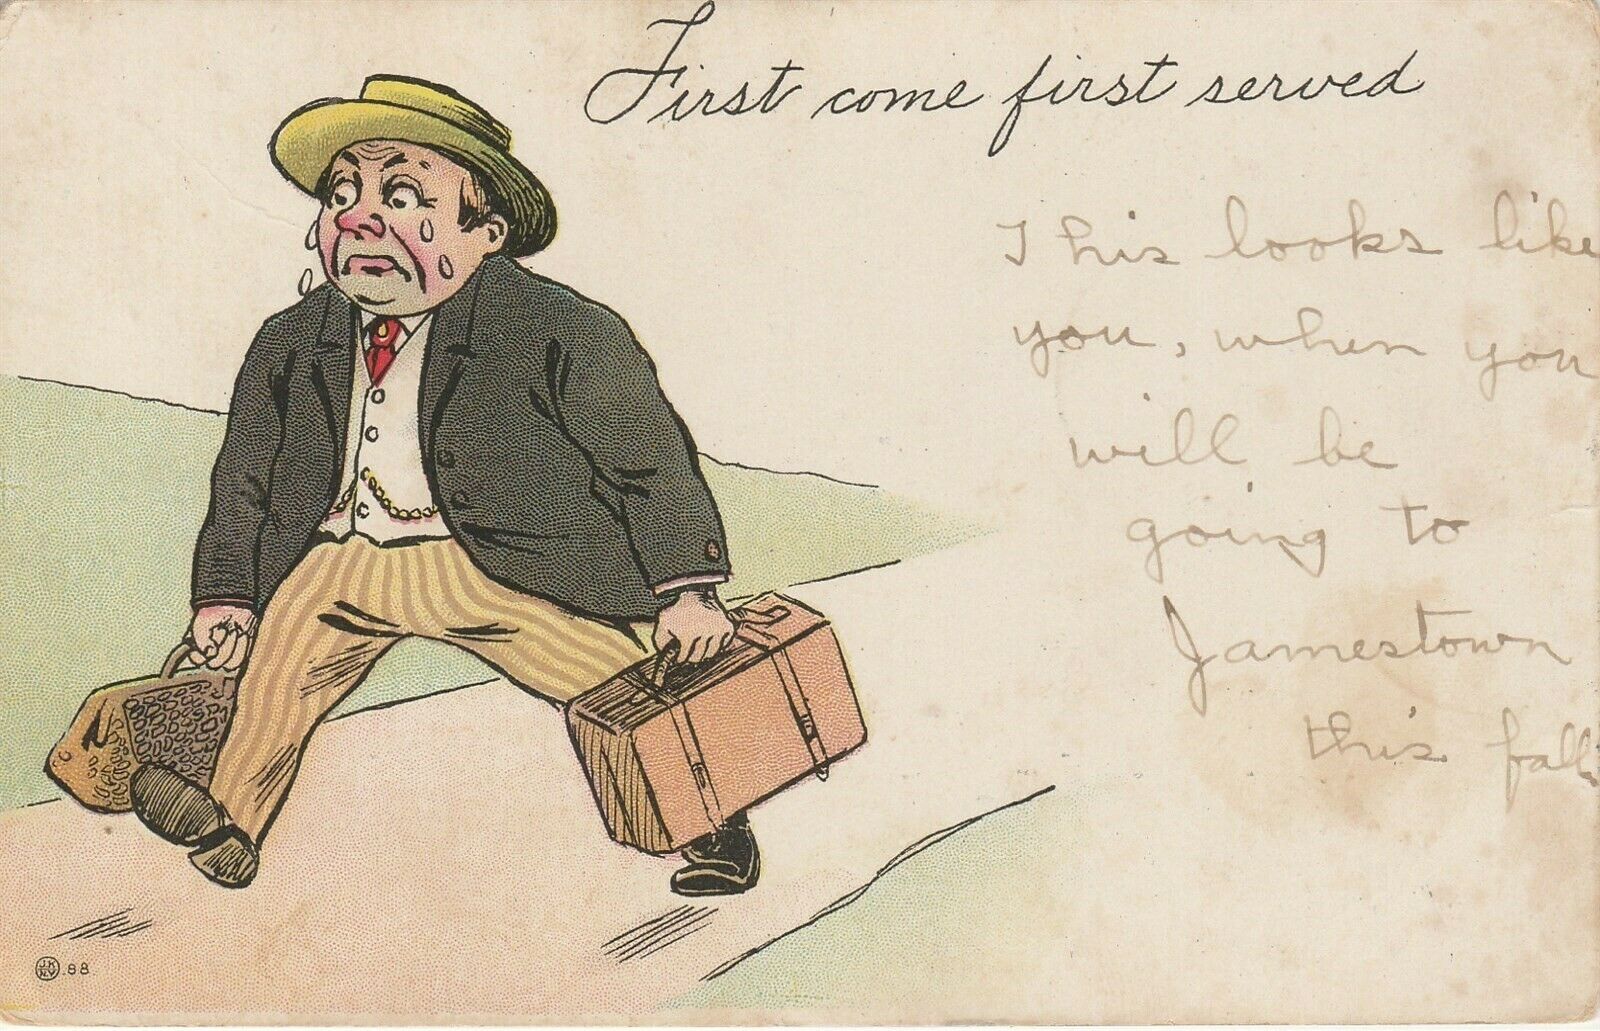 First come first served
This looks like
you, when you
will be
going to
Jamestown
this fall.
J.K
N.Y
.88